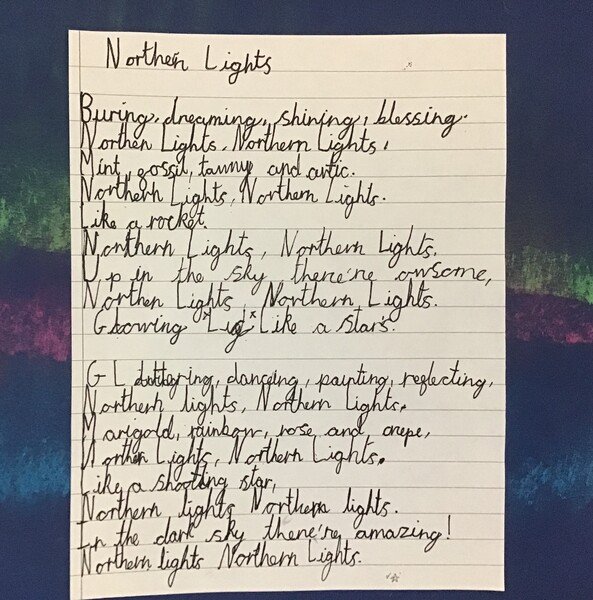 Northern Lights
Buring, dreaming, shining, blessing.
Northen Lights, Northern Lights,
Mint, gossil, tawny and artic.
Northern Lights, Northern Lights.
Like a rocket.
Northern Lights, Northern Lights.
Up in the sky there're awsome,
Northen Lights, Northern Lights.
Glowing Like a stars.
GL dancing, painting, reflecting,
Northern lights, Northern Lights.
Marigold, rainbow, rose and crepe,
Northen Lights, Northern Lights.
Like a shooting star,
Northern lights Northern lights.
In the dark sky there're amazing!
Northern lights Northern Lights.